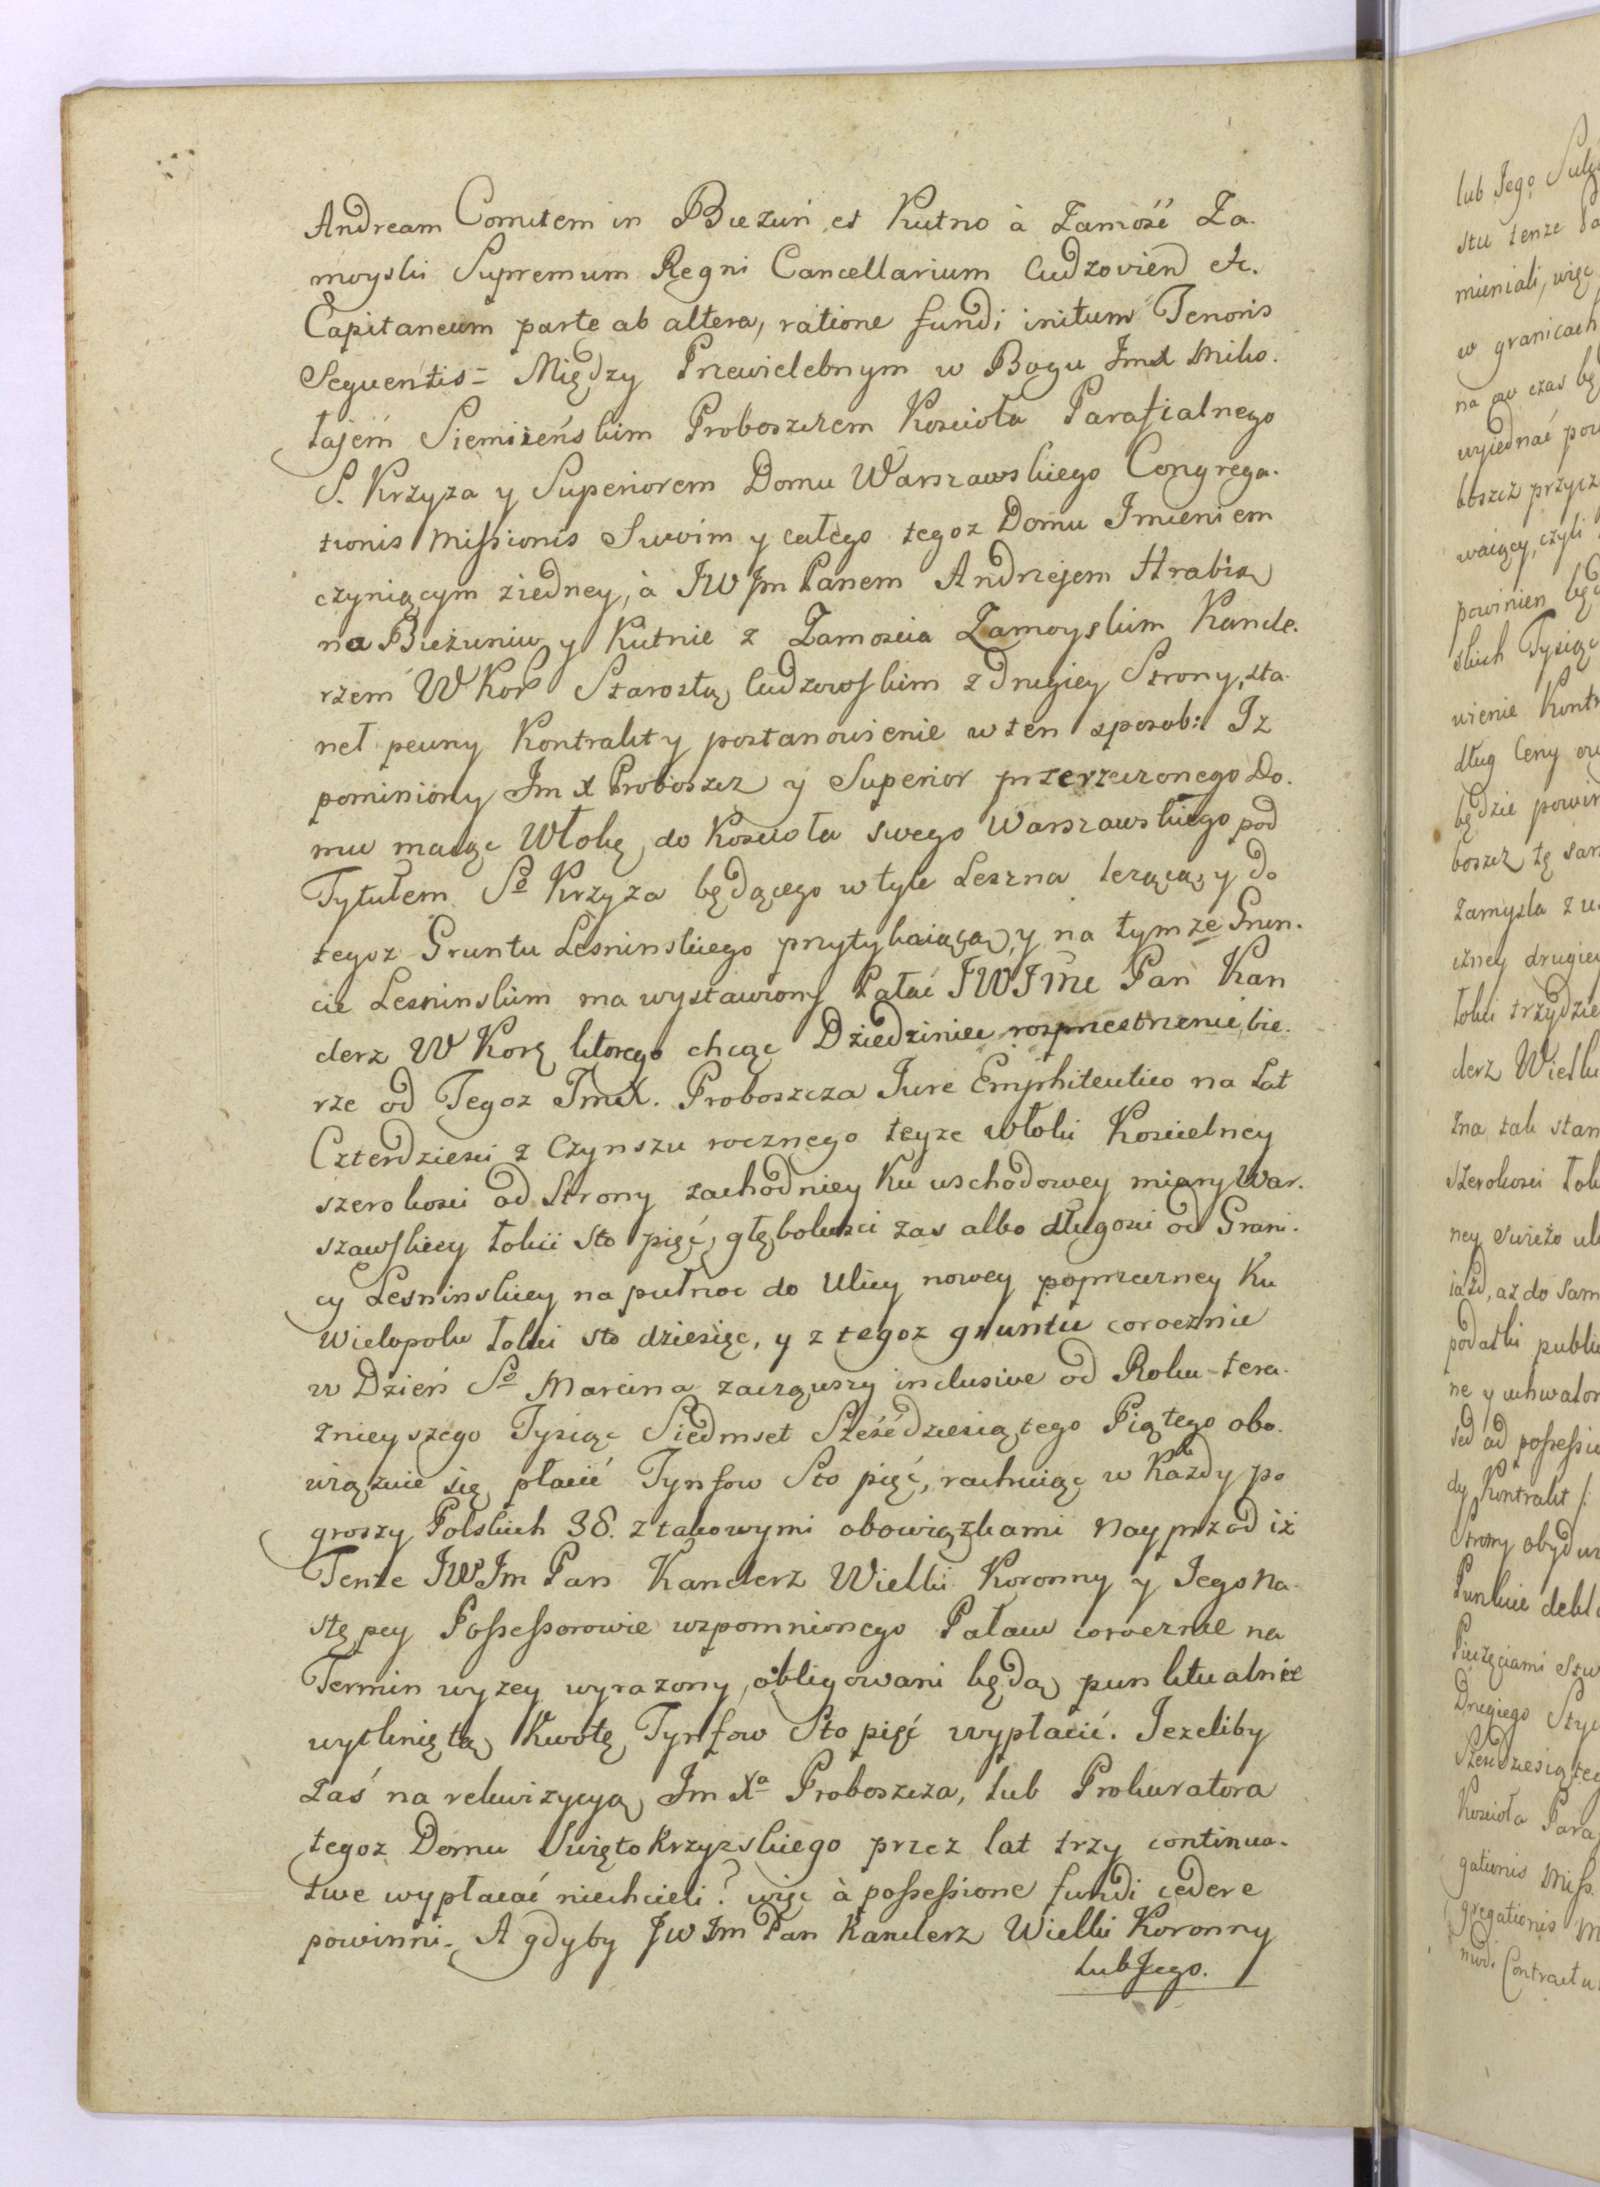 Andream Comitem in Biezuń et Kutno à Zamość Za-
moyski Supremum Regni Cancellarium Ludzovien etc.
Capitaneum parte ab altera, ratione fundi initum Tenoris
Sequentis = Między Przewielebnym w Bogu Jmx Miko-
łajem Siemieńskim Proboszczem Kościoła Parafialnego
S. Krzyza y Superiorem Domu Warszawskiego Congrega-
tionis Missionis Swoim y całego tegoz Domu Jmieniem
czyniącym ziedney, à JW Jm Panem Andrzejem Hrabią
na Bieżuniu y Kutnie z Zamoscia Zamoyskim Kancle-
rzem W Kor Starostą Ludzowskim z drugiey Strony, sta-
neł pewny Kontrakt y postanowienie w ten sposob: Iz
pominiony Jm X Proboszcz y Superior przerzeczonego Do-
mu maiąc Włokę do Kościoła swego Warszawskiego pod
Tytułem So Krzyza będącego w tyle Leszna lezącą, y do
tegoz Gruntu Lesninskiego przytykaiącą, y na tymze Grun-
cie Lesninskim ma wystawiony Pałac JWJmc Pan Kan
clerz W Korę ktorego chcąc Dziedziniec rozprzestrzenie, bie-
rze od Tegoz JmX. Proboszcza Jure Emphiteutico na Lat
Czterdziesci z Czynszu rocznego teyze włoki Koscielney
szerokosci od Strony zachodniey Ku wschodowey miary War-
szawskiey Łokci sto pięć, głębokosci zas albo długosci od Grani-
cy Lesninskiey na pułnoc do Ulicy nowey poprzeczney Ku
Wielopolu Łokci sto dziesięc, y z tegoz gruntu corocznie
w Dzień So Marcina zacząwszy inclusive od Roku tera-
znieyszego Tysiąc Siedmset Sześćdziesiątego Piątego obo-
wiązuie się płacić Tynfow Sto pięć, rachuiąc w Kazdy po
groszy Polskich 38. z takowymi obowiązkami Nayprzod iż
Tenze JWJm Pan Kanclerz Wielki Koronny y Jego Na-
stępcy Possessorowie wzpomnionego Pałacu corocznie na
Termin wyzey wyrazony, obligowani będą punktualnie
wytkniętą Kwotę Tynfow Sto pięć wypłacić. Jezeliby
Zaś na rekwizycyą Jm Xa Proboszcza, lub Prokuratora
tegoz Domu Swięto Krzyzskiego przez lat trzy continua-
tive wypłacać niechcieli? więc à possessione fundi cedere
powinni. A gdyby JW Jm Pan Kanclerz Wielki Koronny
Lub Jego.
lub Jego
stu tenze
mieniali, więc
w granicach
na ow czas
wyiednać
boszcz
waiący, czyli
powinien
skich Tysiąc
wienie
dług Ceny
będzie
boszcz tę
zamysla
czney drugiey
łokci
derz
zna tak
szerokosci
ney swiezo
aż do
podatki
ne y
dy Kontrakt
Strony
Drugiego
Kosciola
gationis Miss.
gregationis